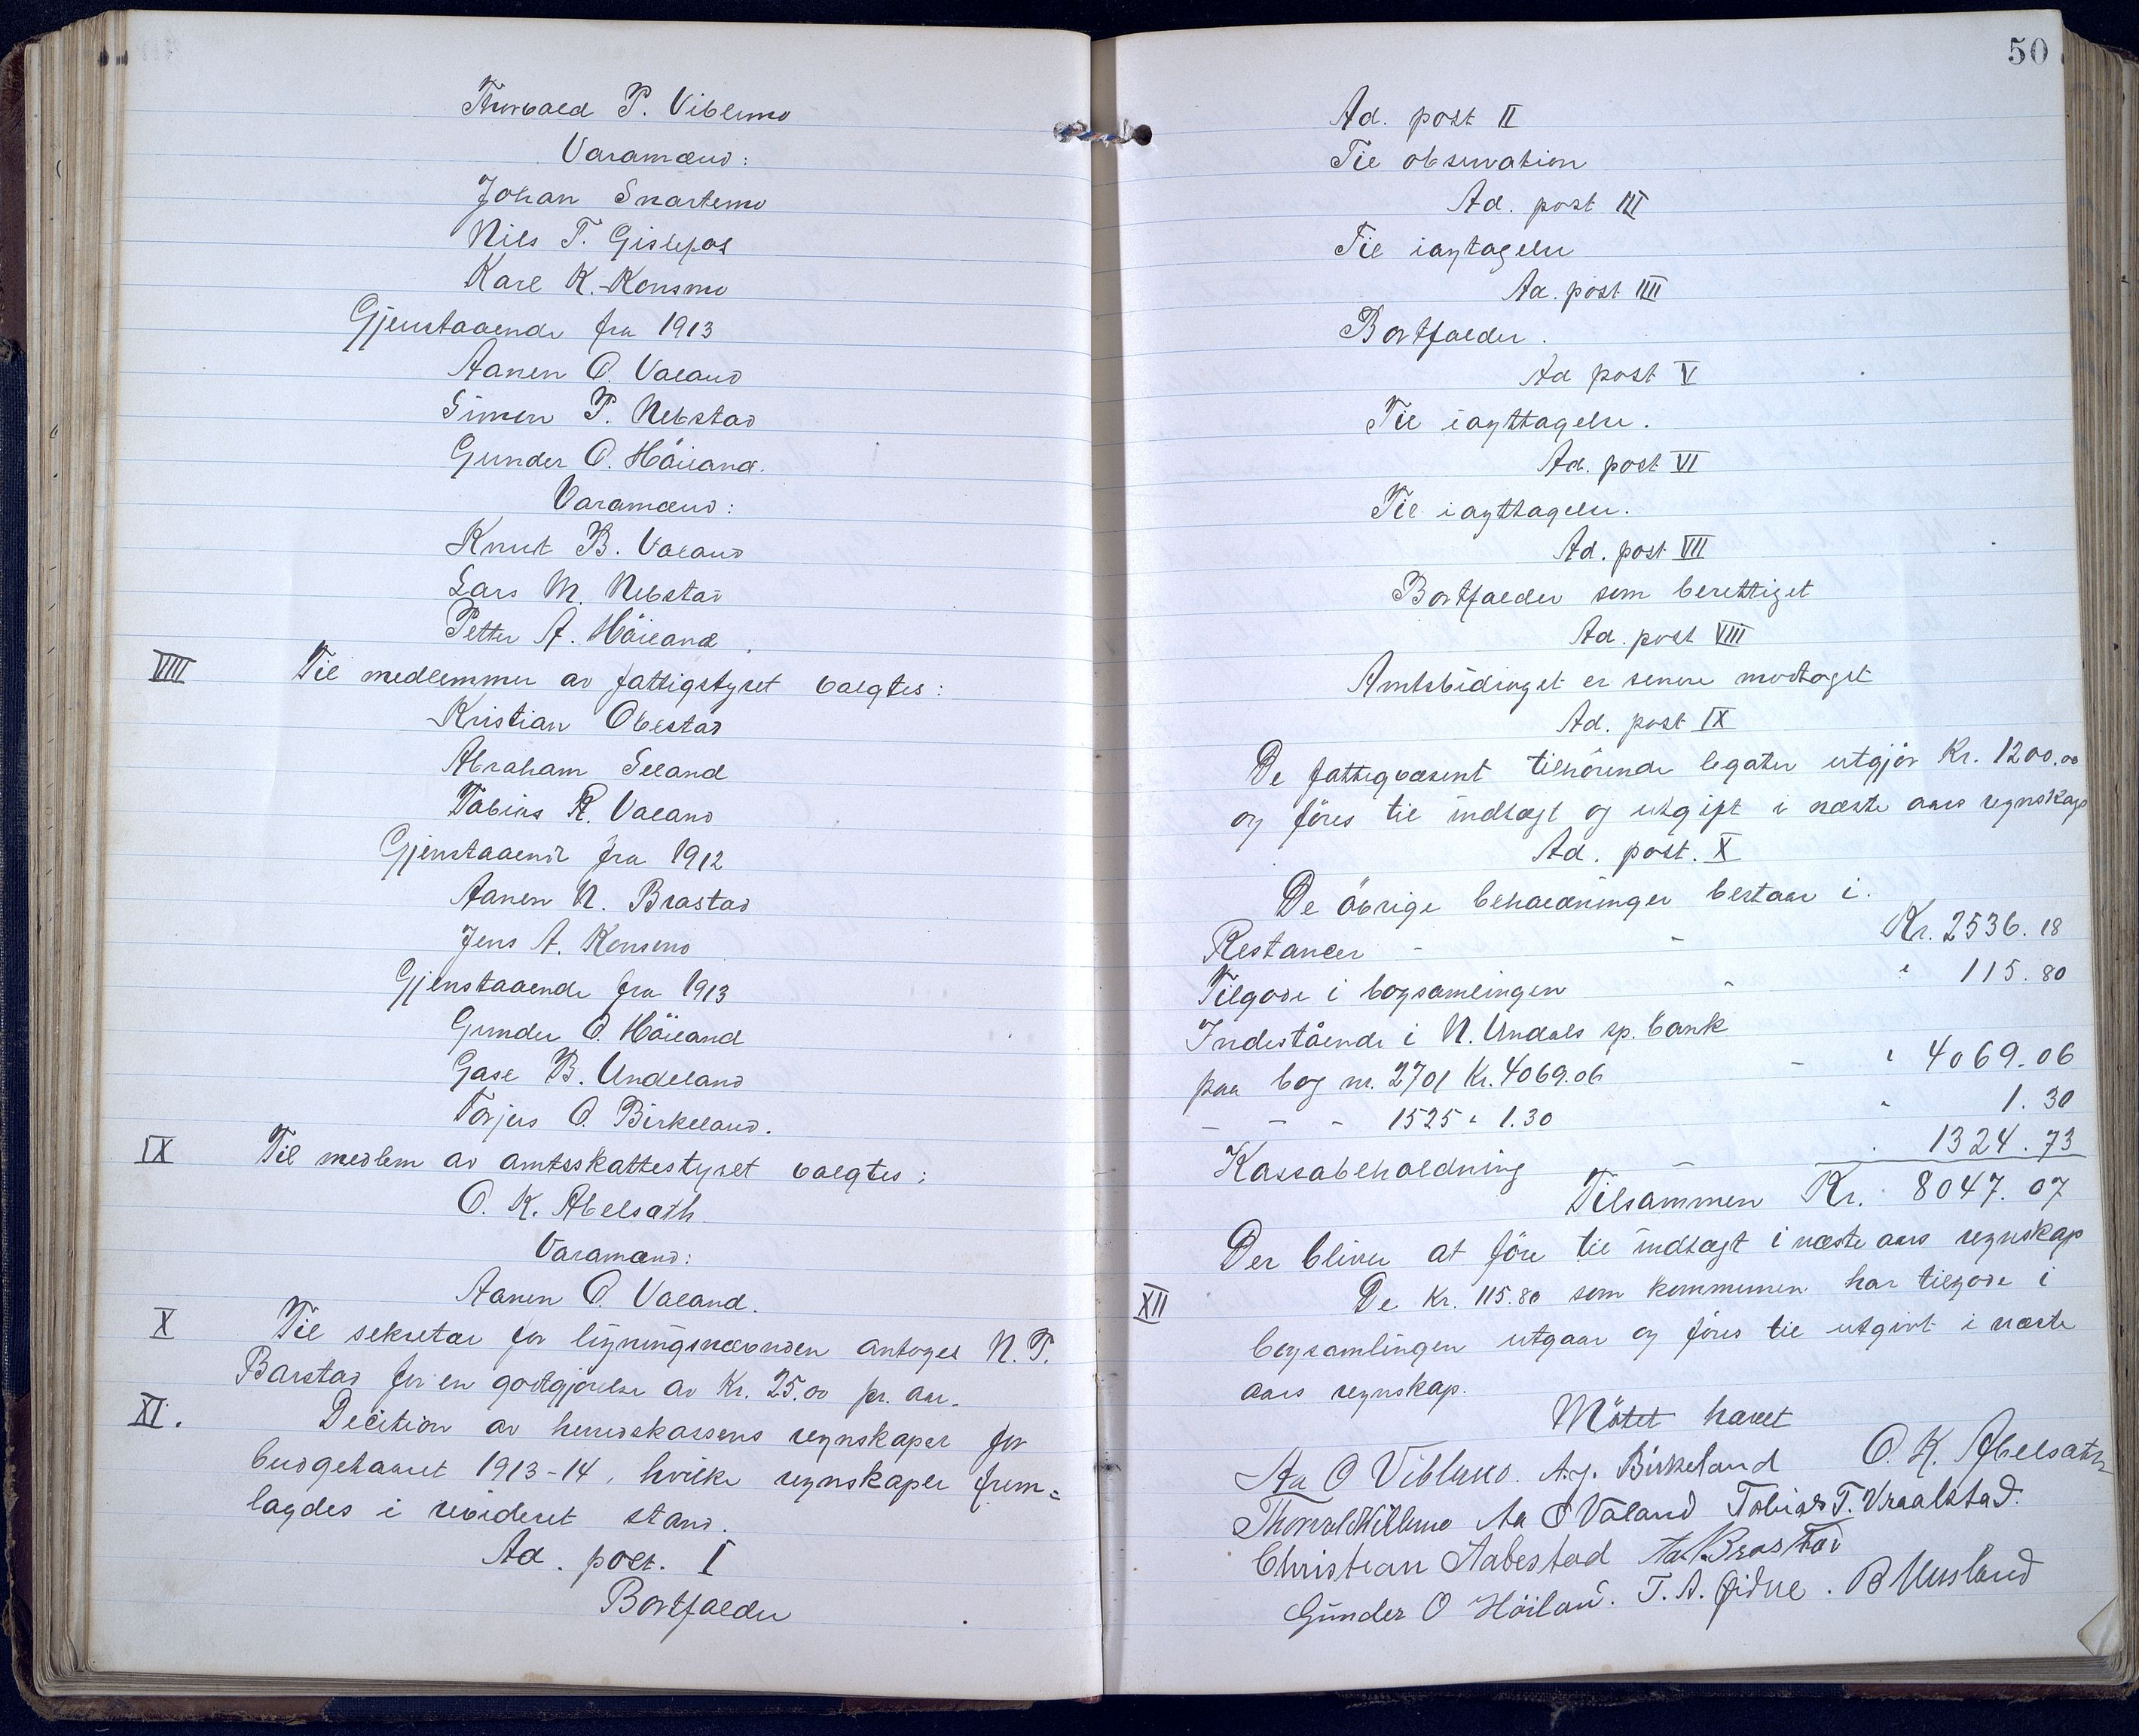 Thorvald P. Viblemo
Varamænd:
Johan Snartemo
Nils T. Gislefos
Karl K. Konsmo
Gjenstaaende fra 1913
Aanen O. Valand
Simen P. Nebstad
Gunder O. Höiland.
Varamænd:
Knut B. Valand
Lars M. Nebstad
Petter A. Höiland
VIII Til medlemmer av fattigstyret valgtes:
Kristian Obestad
Abraham Seland
Tobias R. Valand
Gjenstaaende fra 1912
Aanen N. Brastad
Jens A. Konsmo
Gjenstaaende fra 1913
Gunder O. Höiland
Gase B. Undeland
Torjus O. Birkeland.
IX Til medlem av amtsskattestyret valgtes:
O. K. Abelsæth
Varamand:
Aanen O. Valand.
X Til sekretær for ligningsnævnden antoges N. T.
Barstad for en godtgjörelse av Kr. 25.00 pr. aar.
XI. Decition av herredskassens regnskaper for
budgetaaret 1913-14, hvilke regnskaper frem=
lagdes i revideret stand.
Ad. post. I
Bortfalder
50
Ad. post II
Til observation
Ad. post III
Til iagtagelse
Ad. post IIII
Bortfalder.
Ad post V
Til iagttagelse.
Ad. post VI
Til iagttagelse.
Ad. post VII
Bortfalder som berettiget
Ad. post VIII
Amtsbidraget er senere modtaget
Ad. post IX
De fattigvæsent tilhörende legater utgjör Kr. 1200.00
og föres til indtægt og utgift i næste aars regnskap
Ad. post. X
De övrige beholdninger bestaar i.
Restancer - - Kr. 2536.18
Tilgode i bogsamlingen - " 115.80
Indestående i N. Undals sp. bank
paa bog nr. 2701 Kr. 4069.06 - " 4069.06
- - - 1525 " 1.30 " 1.30
Kassabeholdning - . 1324.73
Tilsammen Kr. 8047.07
Der bliver at före til indtægt i næste aars regnskap
XII De Kr. 115.80 som kommunen har tilgode i
bogsamlingen utgaar og föres til utgivt i næste
aars regnskap.
Mötet hævet
Aa O Viblemo. A. J. Birkeland O. K. Abelsæth
Thorvald Viblemo Aa O Valand Tobias T. Vraalstad.
Christian Aabestad Aa N Brastad
Gunder O Höiland. T. A. Øidne. B Uusland